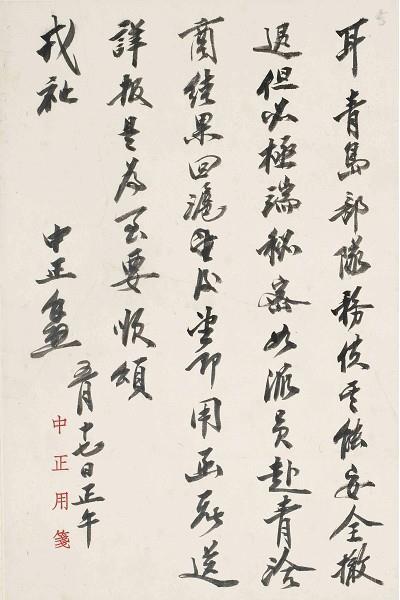 耳青島部隊務使其能安全撤
退但必極端秘密如派員赴青洽
商結果回滬即用函送
詳報是為至要順頌
戎祉
中正
五月十七日正午
中正用箋
5